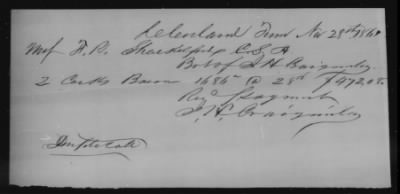 Cleveland Tenn Nov 28th 186
Maj F. B. Shackelford C.S.A
Bot of J. H. Craigmiles
2 Casks Bacon 1686 lbs @ 28cts $472.08
Recd Payment
J. H. Craigmiles
Duplicate